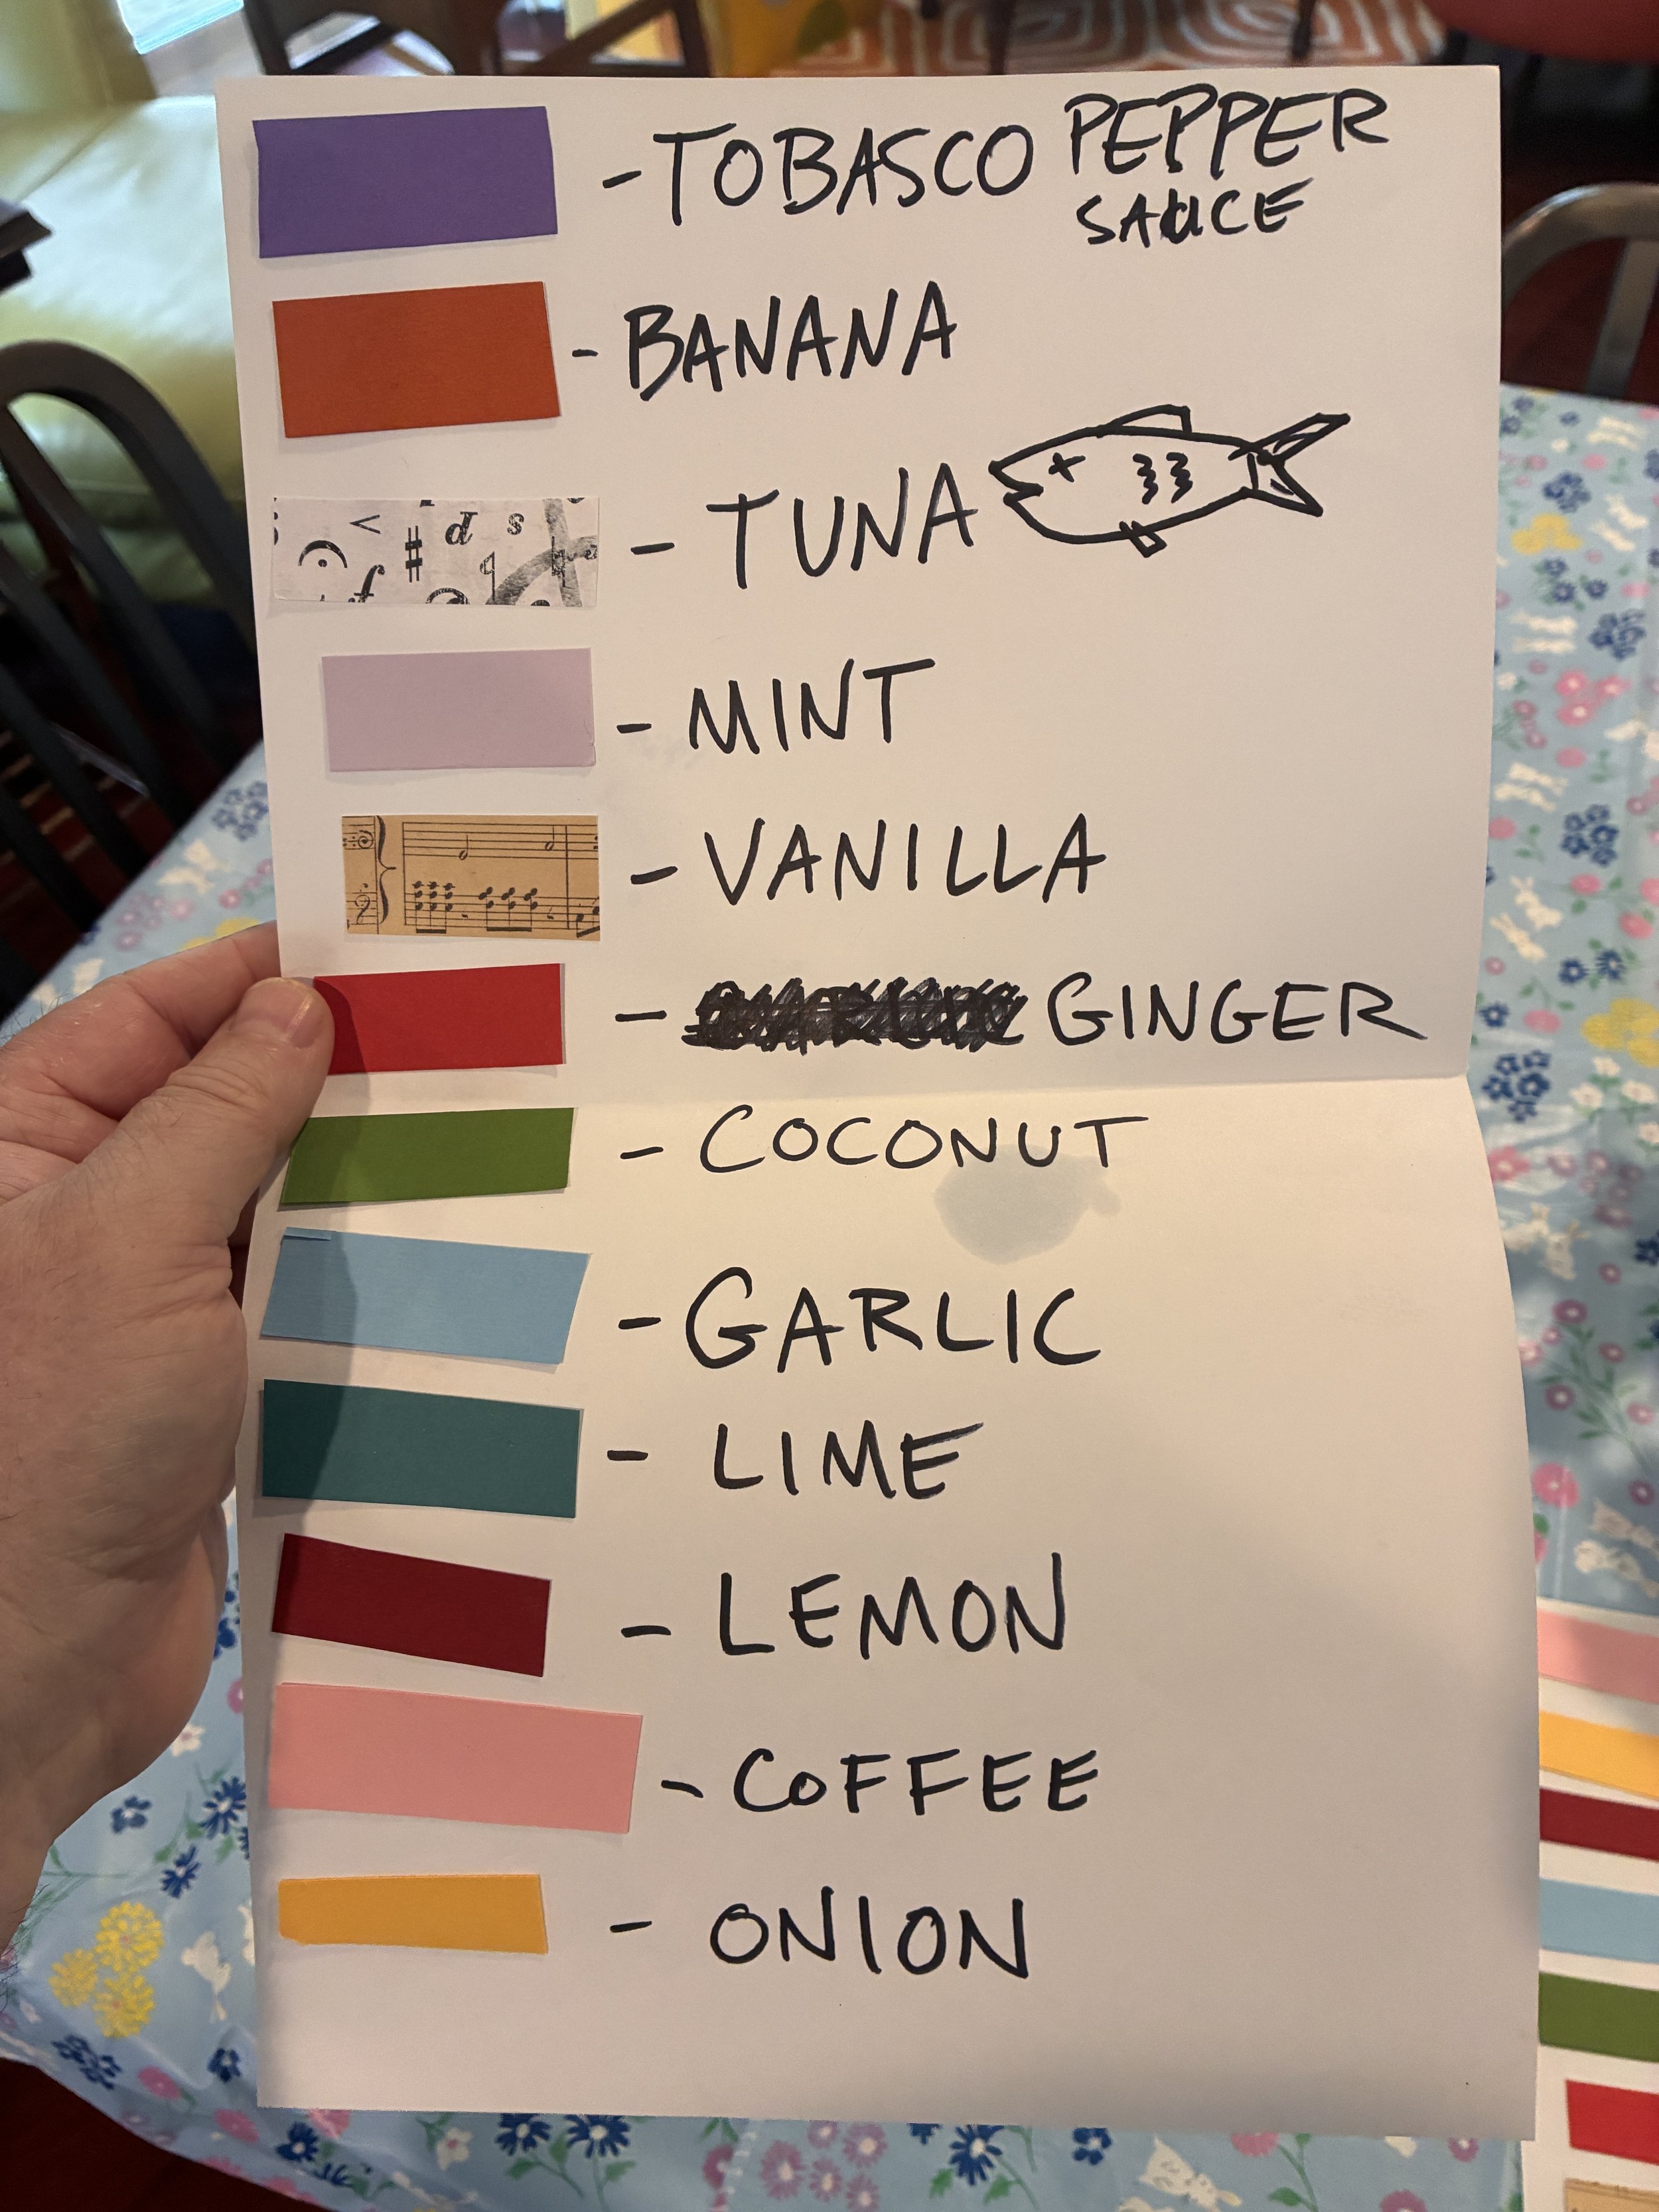 - TOBASCO PEPPER
SAUCE
- BANANA
- TUNA
< # d s
f
- MINT
- VANILLA
- GINGER
- COCONUT
- GARLIC
- LIME
- LEMON
- COFFEE
- ONION